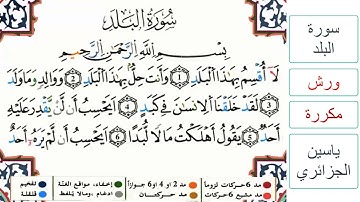 سورة البلد
ورش
مكررة
ياسين الجزائري
سُورَةُ البَلَدِ
بِسْمِ اللَّهِ الرَّحْمَٰنِ الرَّحِيمِ
لَا أُقْسِمُ بِهَٰذَا الْبَلَدِ ١ وَأَنتَ حِلٌّ بِهَٰذَا الْبَلَدِ ٢ وَوَالِدٍ وَمَا وَلَدَ
٣ لَقَدْ خَلَقْنَا الْإِنسَانَ فِي كَبَدٍ ٤ أَيَحْسِبُ أَن لَّن يَقْدِرَ عَلَيْهِ
أَحَدٌ ٥ يَقُولُ أَهْلَكْتُ مَالًا لُّبَدًا ٦ أَيَحْسِبُ أَن لَّمْ يَرَهُ أَحَدٌ
مد 6 حركات لزوما
مد 2 أو 4 أو 6 جوازا
إخفاء، ومواقع الغنة
تفخيم
مد مشبع 6 حركات
مد حركتان
ادغام، ومالا يلفظ
قلقلة